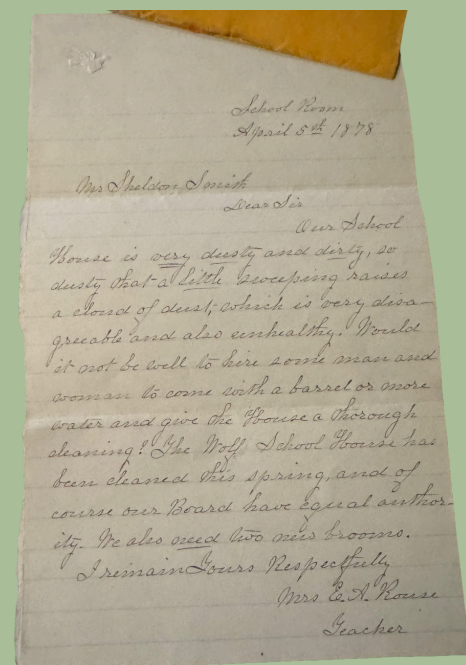 School Room
April 5th 1878
Mr Sheldon Smith
Dear Sir
Our School
House is very dusty and dirty, so
dusty that a little sweeping raises
a cloud of dust, which is very disa-
greeable and also unhealthy. Would
it not be well to hire some man and
woman to come with a barrel or more
water and give the House a thorough
cleaning? The Wolf School House has
been cleaned this spring, and of
course our Board have equal author-
ity. We also need two new brooms.
I remain Yours Respectfully
Mrs E. A. Rouse
Teacher